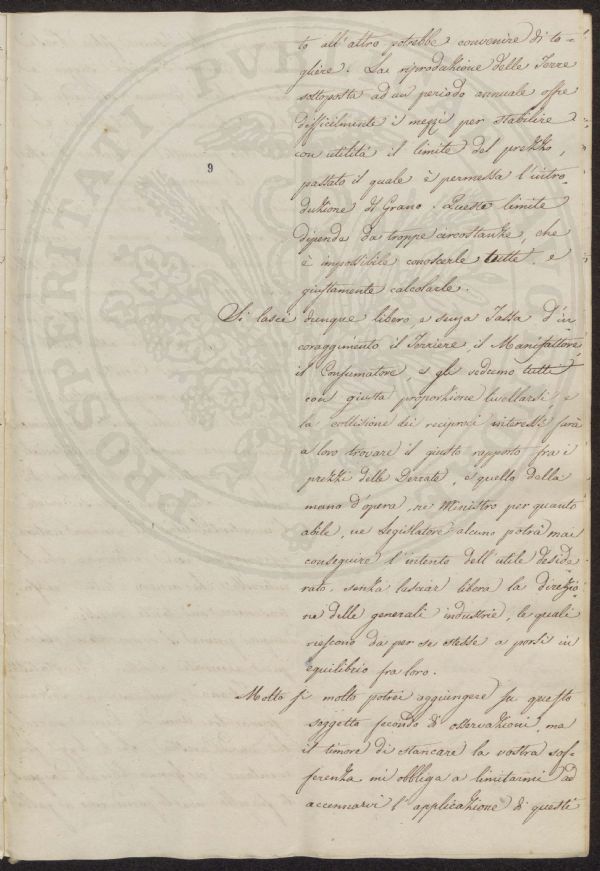 to all'altro potrebbe convenire di to-
gliere. La riproduzione delle Terre
sottoposta ad un periodo annuale offre
difficilmente i mezzi per stabilire
con utilità il limite del prezzo,
9
passato il quale è permessa l'intro-
duzione di Grano. Questo limite
dipende da troppe circostanze, che
è impossibile conoscerle tutte, e
giustamente calcolarle.
Si lasci dunque libero, e senza Tassa d'in
coraggimento il Terriere, il Manifattore,
il Consumatore, e gli vedremo tutti
con giusta proporzione livellarsi, e
la collisione dei reciproci interessi farà
a loro trovare il giusto rapporto fra i
prezzi delle Derrate, e quello della
mano d'opera, ne Ministro per quanto
abile, ne Legislatore alcuno potrà mai
conseguire l'intento dell'utile deside-
rato, senza lasciar libera la direzio-
ne delle generali industrie, le quali
riescono da per se stesse a porsi in
equilibrio fra loro.
Molto si molto potrei aggiungere su questo
soggetto fecondo di osservazioni, ma
il timore di stancare la vostra sof-
ferenza mi obbliga a limitarmi ad
accennarvi l'applicazione di questi
PROSPERITATI PUB